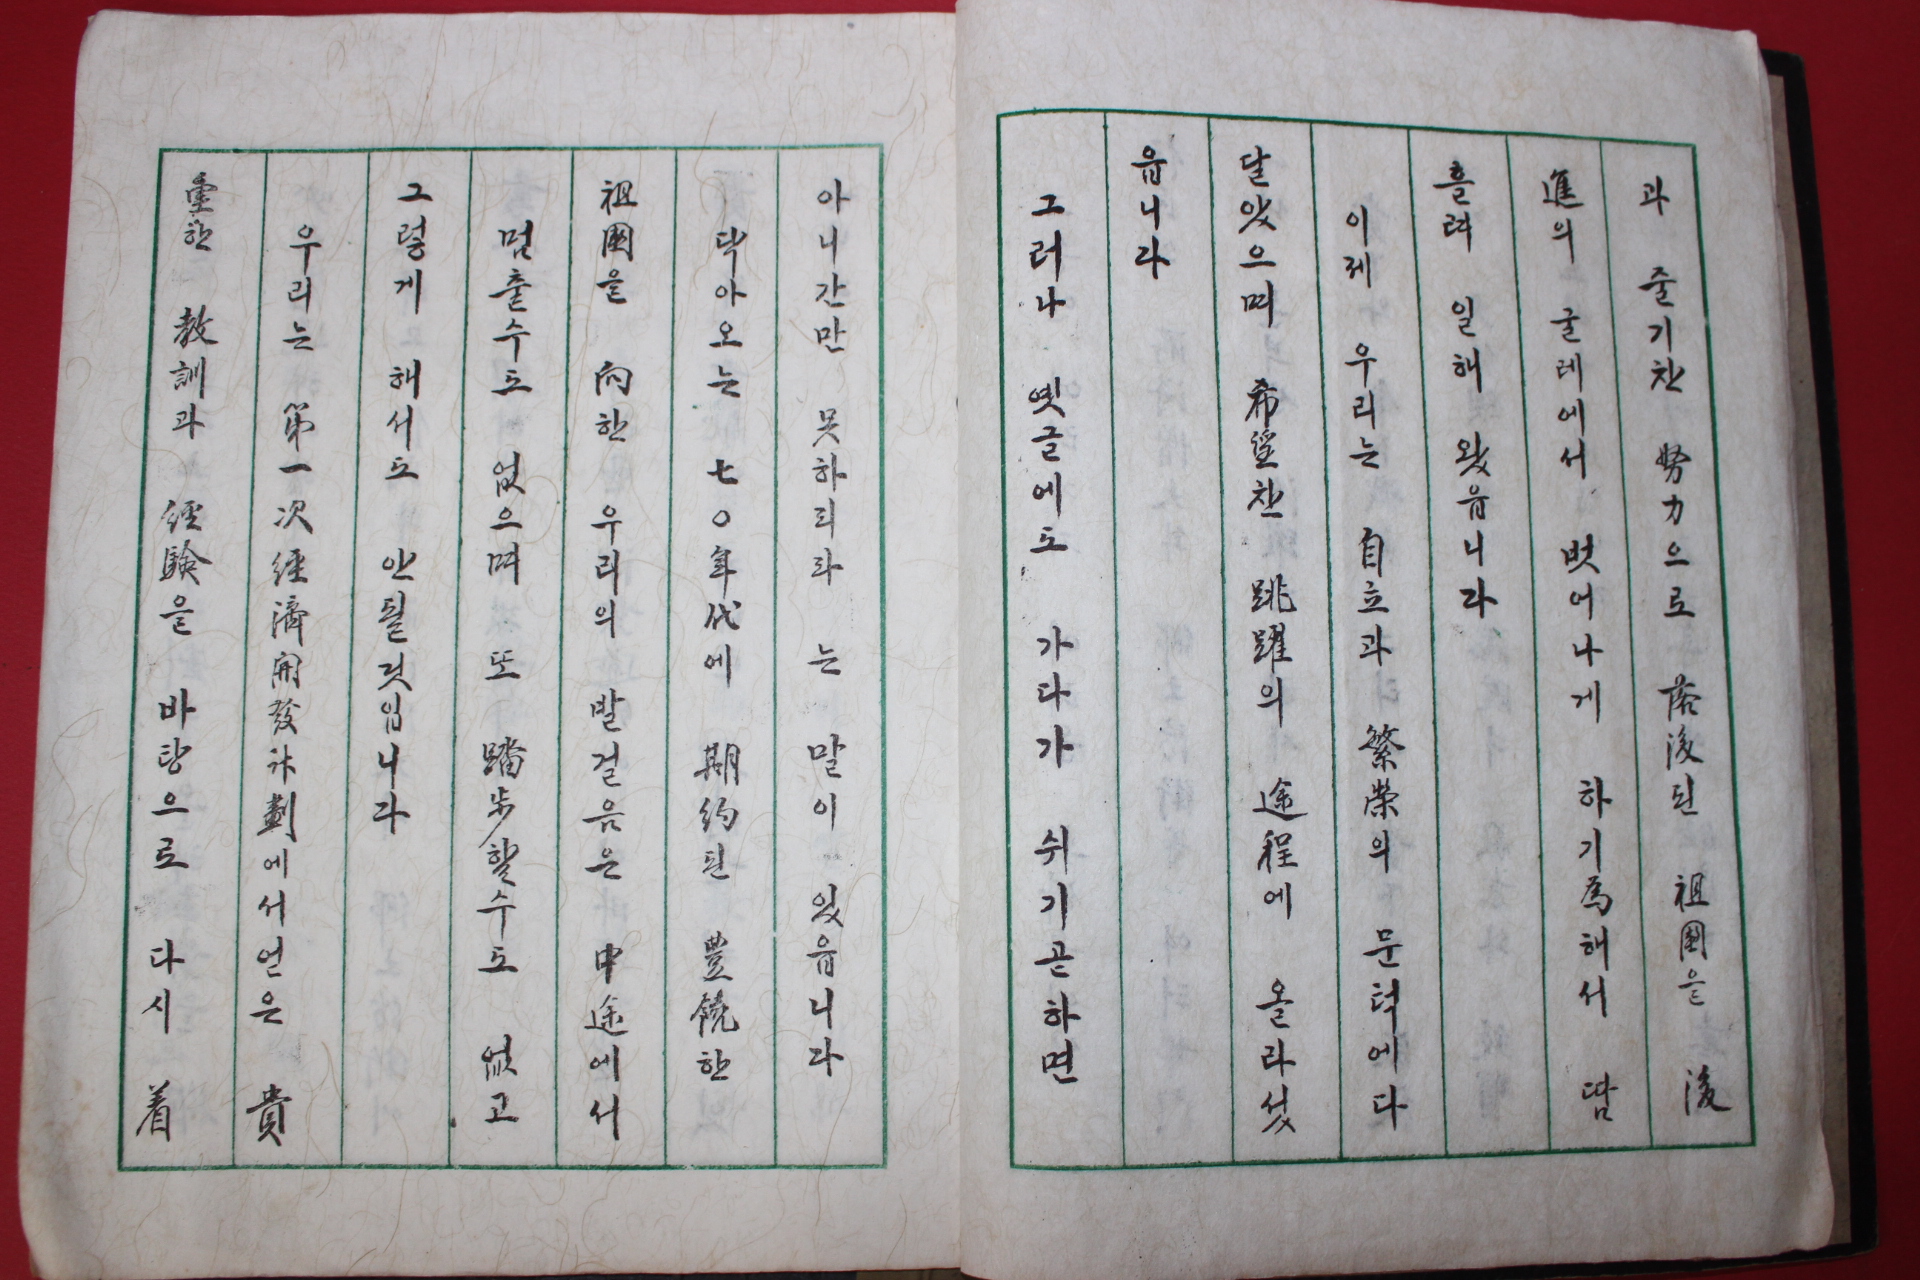 과 줄기찬 努力으로 落後된 祖國을 後
進의 굴레에서 벗어나게 하기 爲해서 땀
흘려 일해 왔읍니다
이제 우리는 自立과 繁榮의 문턱에 다
달았으며 希望찬 跳躍의 途程에 올라섰
읍니다
그러나 옛글에도 가다가 쉬기곧하면
아니간만 못하리라 는 말이 있읍니다
닥아오는 七○年代에 期約된 豊饒한
祖國을 向한 우리의 발걸음은 中途에서
멈출수도 없으며 또 踏步할수도 없고
그렇게 해서도 안될것입니다
우리는 第一次經濟開發計劃에서얻은 貴
重한 敎訓과 經驗을 바탕으로 다시 着